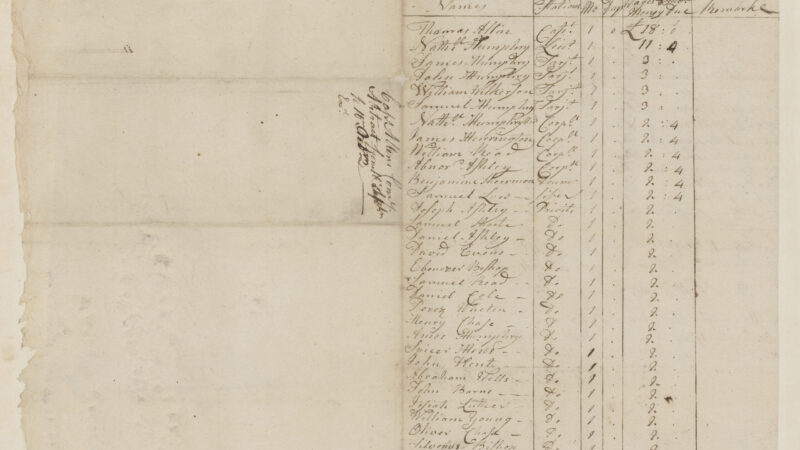 Names Stations Mo Days Due Remarks
Thomas Allin Capt. 1 0 £18 : 0
Natthl. Humphry Lieut 1 11 : 4
James Humphry Sarjt. 1 3 :
John Humphry Sarjt. 1 3 :
William Wilkerson Sarjt. 1 3 :
Samuel Humphry Sarjt. 1 3 :
Natthl. Corpl. 1 2 : 4
James Herrington Corpl. 1 2 : 4
William Read Corpl. 1 2 : 4
Abner Ashley Corpl. 1 2 : 4
Benjamine 1 2 : 4
Samuel Low fifer 1 2 : 4
Joseph Ashley Privits 1 2
Samuel Do 1 2
Daniel Ashley Do 1 2
David Evens Do 1 2
Ebenezer Bishop Do 1 2
Samuel Read Do 1 2
Daniel Cole Do 1 2
Do 1 2
Henry Chase Do 1 2
Amos Humphry Do 1 2
Spicer Do 1 2
John Kent Do 1 2
Abraham Do 1 2
John Barns Do 1 2
Josiah Luther Do 1 2
William Young Do 1 2
Oliver Chase Do 1 2
Bishop Do 1 2
Capt Allins
Abstract from